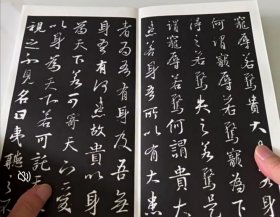 寵辱若驚貴大
何謂寵辱辱為下
得之若驚失之若驚
謂寵辱若驚何謂貴大
患若身吾所以有大患
者為吾有身及吾無
身吾有何患故貴以身
為天下若可寄天下愛
以身為天下若可託天
視之不見名曰夷聽之不